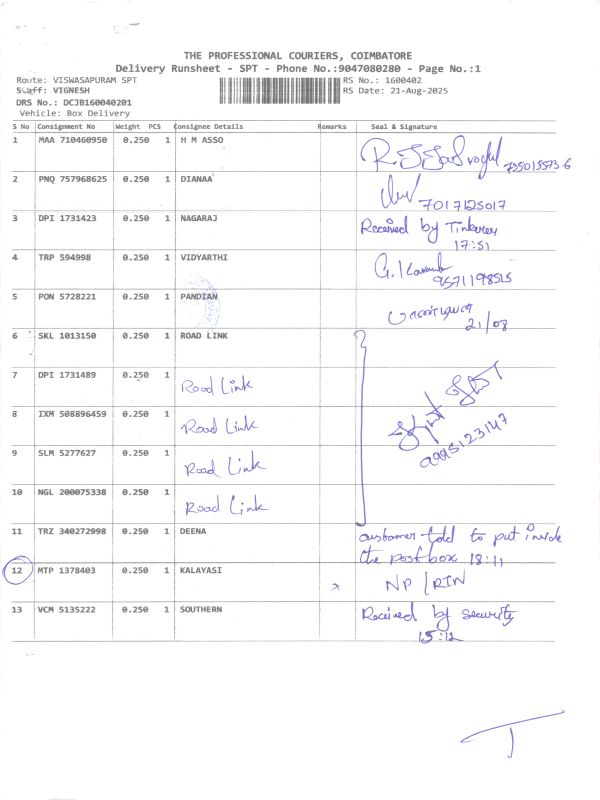 THE PROFESSIONAL COURIERS, COIMBATORE
Delivery Runsheet - SPT - Phone No.:9047080280 - Page No.:1
Route: VISWASAPURAM SPT RS No.: 1600402
Staff: VIGNESH RS Date: 21-Aug-2025
DRS No.: DCJB160040201
Vehicle: Box Delivery
S No Consignment No Weight PCS Consignee Details Remarks Seal & Signature
1 MAA 710460950 0.250 1 H M ASSO
2 PNQ 757968625 0.250 1 DIANAA 7017125017
3 DPI 1731423 0.250 1 NAGARAJ Received by Tinkerer
17:51
4 TRP 594998 0.250 1 VIDYARTHI
5 PON 5728221 0.250 1 PANDIAN
21/08
6 SKL 1013150 0.250 1 ROAD LINK
7 DPI 1731489 0.250 1 Road Link
8 IXM 508896459 0.250 1 Road Link
9 SLM 5277627 0.250 1 Road Link
10 NGL 200075338 0.250 1 Road Link
11 TRZ 340272998 0.250 1 DEENA customer told to put inside
the postbox 18:11
12 MTP 1378403 0.250 1 KALAYASI x NP/RTN
13 VCM 5135222 0.250 1 SOUTHERN Received by security
15:12